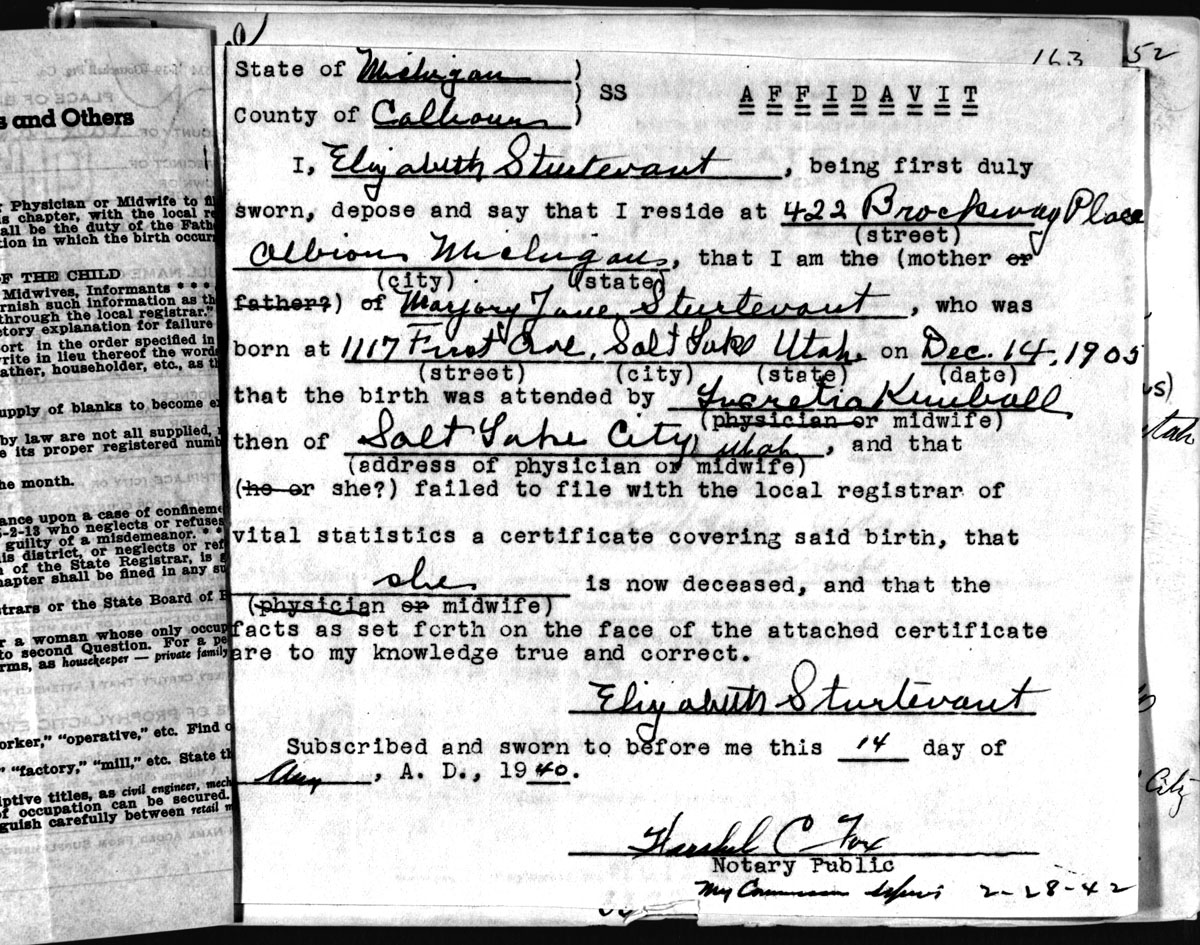 163 52
s and Others
Physician or Midwife to fi
is chapter, with the local re
all be the duty of the Fathe
tion in which the birth occurs
OF THE CHILD
Midwives, Informants * * *
rnish such information as th
through the local registrar."
ctory explanation for failure
ort in the order specified in
write in lieu thereof the words
ather, householder, etc., as th
upply of blanks to become e
by law are not all supplied,
e its proper registered numb
he month.
ance upon a case of confineme
-2-13 who neglects or refuses
guilty of a misdemeanor. * *
is district, or neglects or ref
of the State Registrar, is g
hapter shall be fined in any su
strars or the State Board of H
r a woman whose only occup
to second Question. For a pe
rms, as housekeeper — private family
orker," "operative," etc. Find o
" "factory," "mill," etc. State th
iptive titles, as civil engineer, mech
of occupation can be secured.
guish carefully between retail m
State of Michigan )
) SS A F F I D A V I T
County of Calhoun )
I, Elizabeth Sturtevant, being first duly
sworn, depose and say that I reside at 422 Brockway Place
(street)
Albion Michigan, that I am the (mother or
(city) (state)
father?) of Marjory Jane Sturtevant, who was
born at 1117 First Ave, Salt Lake Utah on Dec. 14, 1905
(street) (city) (state) (date)
that the birth was attended by Lucretia Kimball
(physician or midwife)
then of Salt Lake City, Utah, and that
(address of physician or midwife)
(he or she?) failed to file with the local registrar of
vital statistics a certificate covering said birth, that
she is now deceased, and that the
(physician or midwife)
facts as set forth on the face of the attached certificate
are to my knowledge true and correct.
Elizabeth Sturtevant
Subscribed and sworn to before me this 14 day of
Aug, A. D., 1940.
Harshel C Fox
Notary Public
My Commission Expires 2-28-42
us)
Utah
City